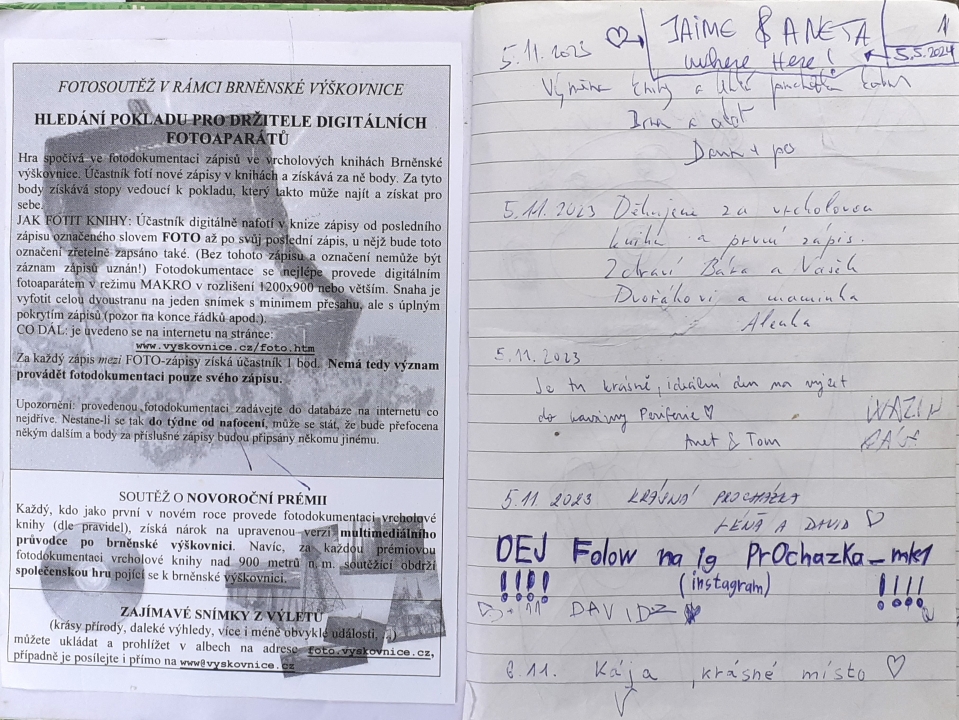 FOTOSOUTĚŽ V RÁMCI BRNĚNSKÉ VÝŠKOVNICE
HLEDÁNÍ POKLADU PRO DRŽITELE DIGITÁLNÍCH
FOTOAPARÁTŮ
Hra spočívá ve fotodokumentaci zápisů ve vrcholových knihách Brněnské
výškovnice. Účastník fotí nové zápisy v knihách a získává za ně body. Za tyto
body získává stopy vedoucí k pokladu, který takto může najít a získat pro
sebe.
JAK FOTIT KNIHY: Účastník digitálně nafotí v knize zápisy od posledního
zápisu označeného slovem FOTO až po svůj poslední zápis, u nějž bude toto
označení zřetelně zapsáno také. (Bez tohoto zápisu a označení nemůže být
záznam zápisů uznán!) Fotodokumentace se nejlépe provede digitálním
fotoaparátem v režimu MAKRO v rozlišení 1200x900 nebo větším. Snaha je
vyfotit celou dvoustranu na jeden snímek s minimem přesahu, ale s úplným
pokrytím zápisů (pozor na konce řádků apod.).
CO DÁL: je uvedeno se na internetu na stránce:
www.vyskovnice.cz/foto.htm
Za každý zápis mezi FOTO-zápisy získá účastník 1 bod. Nemá tedy význam
provádět fotodokumentaci pouze svého zápisu.
Upozornění: provedenou fotodokumentaci zadávejte do databáze na internetu co
nejdříve. Nestane-li se tak do týdne od nafocení, může se stát, že bude přefocena
někým dalším a body za příslušné zápisy budou připsány někomu jinému.
SOUTĚŽ O NOVOROČNÍ PRÉMII
Každý, kdo jako první v novém roce provede fotodokumentaci vrcholové
knihy (dle pravidel), získá nárok na upravenou verzi multimediálního
průvodce po brněnské výškovnici. Navíc, za každou prémiovou
fotodokumentaci vrcholové knihy nad 900 metrů n. m. soutěžící obdrží
společenskou hru pojící se k brněnské výškovnici.
ZAJÍMAVÉ SNÍMKY Z VÝLETŮ
(krásy přírody, daleké výhledy, více i méně obvyklé události, ...)
můžete ukládat a prohlížet v albech na adrese foto.vyskovnice.cz,
případně je posílejte i přímo na www@vyskovnice.cz
JAIME & ANETA
where Here!
5.5.2024
5.11.2023
Výměna knihy a
5.11.2023 Děkujeme za vrcholovou
knihu a první zápis.
Zdraví Bára a Vašek
Dvořákovi a maminka
Alenka
5.11.2023
Je tu krásně, ideální den na výlet
do kavárny Periferie ♡
Anet & Tom
5.11 2023 KRÁSNÁ PROCHÁZKA
LÉŇA A DAVID ♡
DEJ Folow na ig PrOchazKa_mk1
!!!! (instagram) !!!!
DAVID
8.11. Kája, krásné místo ♡